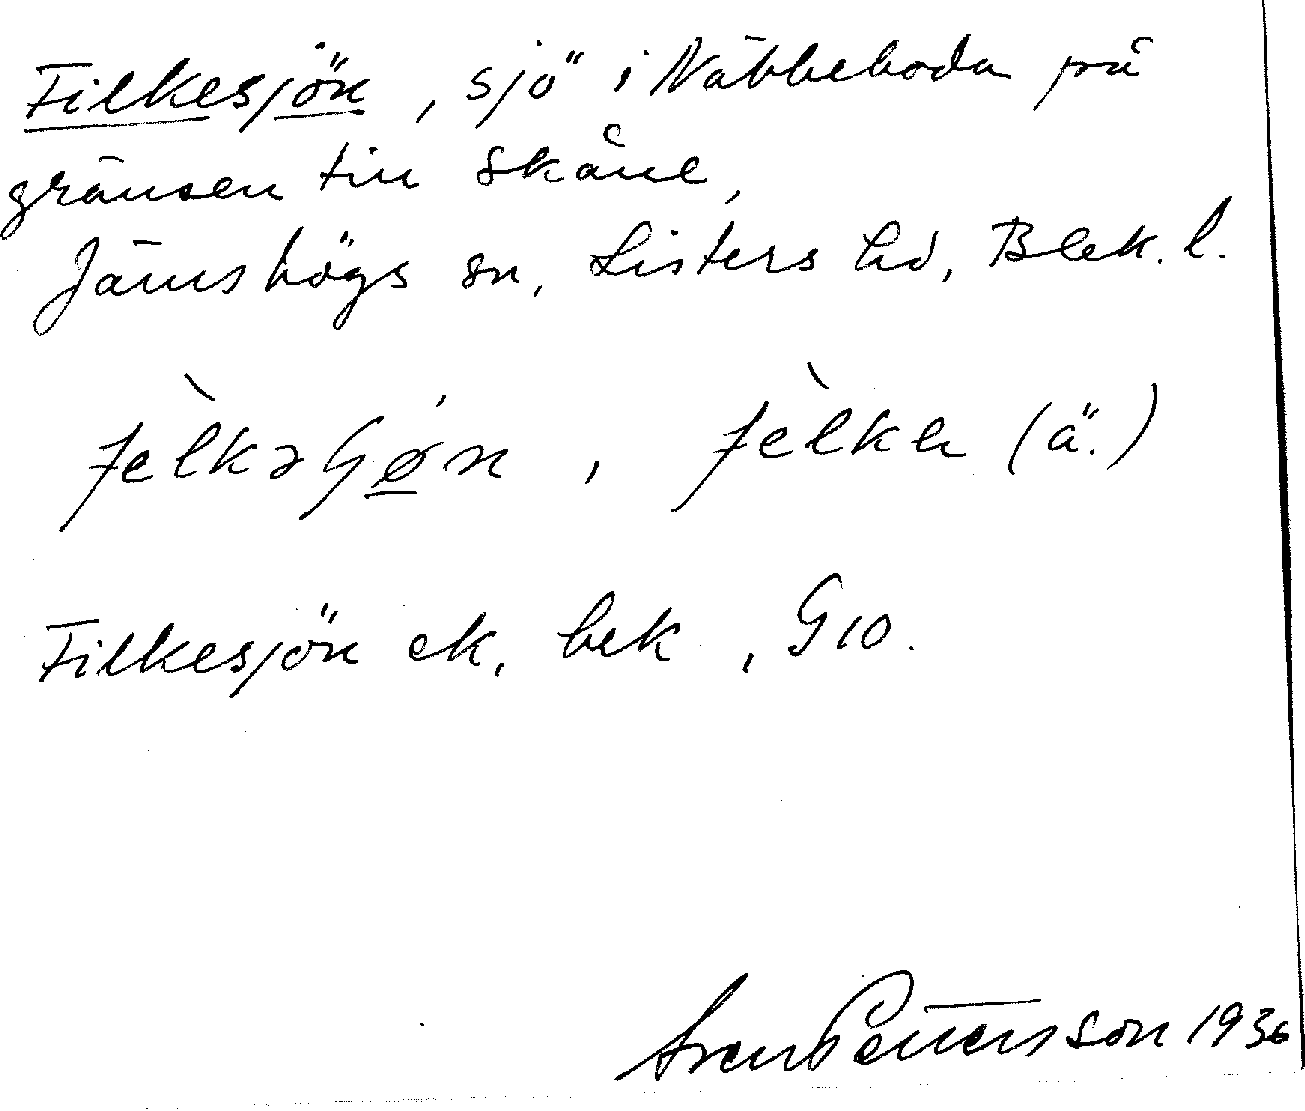 Filkesjön, sjö i Näbbeboda på
gränsen till Skåne,
Jämshögs sn, Listers hd, Blek. l.
fèlkəʃǿn, fèlkɐ (ä.)
Filkesjön ek. bek, G10.
Sven Pettersson 1936